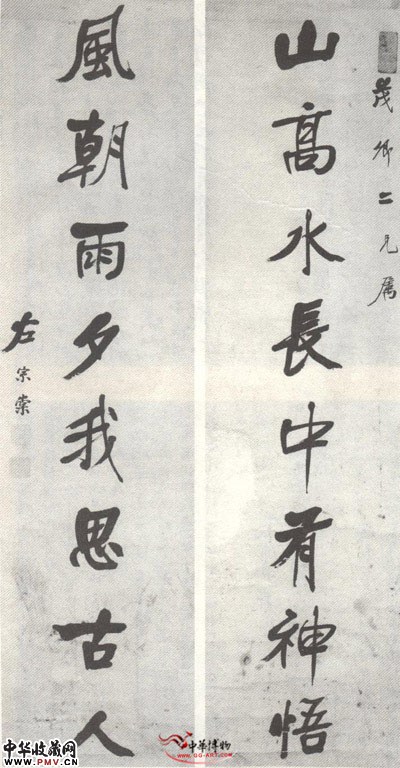 茂卿二兄属
山高水長中有神悟
風朝雨夕我思古人
左宗棠
中华收藏网
www.PMV.cn
中华博物
www.gg-art.com